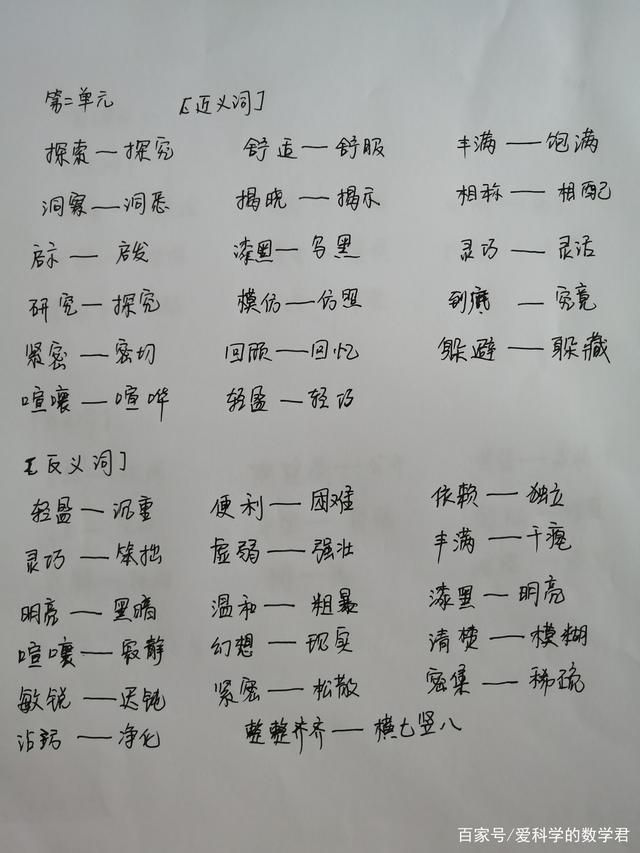 第二单元 [近义词]
探索—探究 舒适—舒服 丰满—饱满
洞察—洞悉 揭晓—揭示 相称—相配
启示—启发 漆黑—乌黑 灵巧—灵活
研究—探究 模仿—仿照 到底—究竟
紧密—密切 回顾—回忆 躲避—躲藏
喧嚷—喧哗 轻盈—轻巧
[反义词]
轻盈—沉重 便利—困难 依赖—独立
灵巧—笨拙 虚弱—强壮 丰满—干瘪
明亮—黑暗 温和—粗暴 漆黑—明亮
喧嚷—寂静 幻想—现实 清楚—模糊
敏锐—迟钝 紧密—松散 密集—稀疏
沾染—净化 整整齐齐—横七竖八
百家号/爱科学的数学君